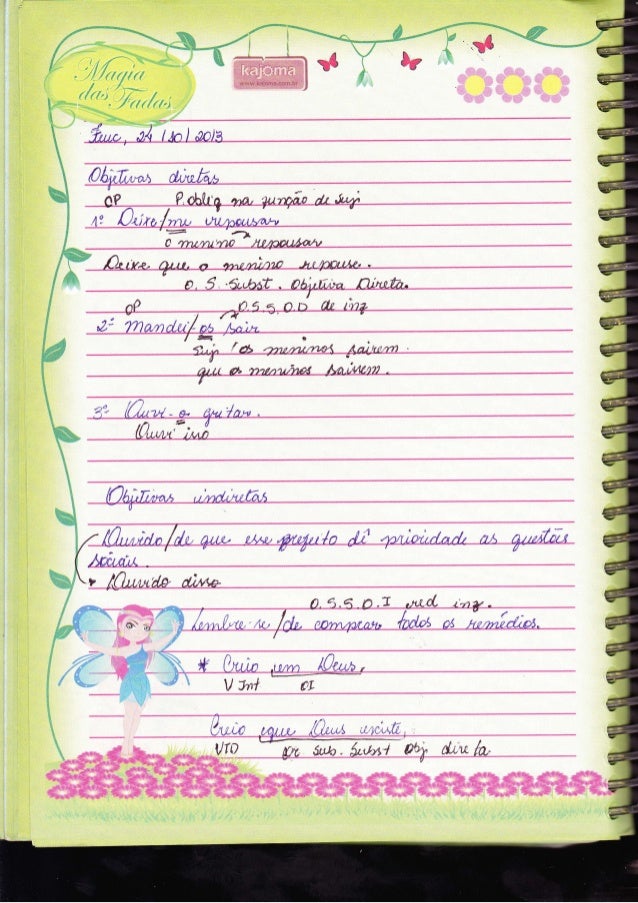 Magia
das Fadas
kajoma
www.kajoma.com.br
Feuc, 24 / 10 / 2013
Objetivas diretas
OP P. obliq na função de suj
1º Deixe / me repousar
o menino repousar
Deixe que o menino repouse.
O. S. Subst. Objetiva Direta.
OP O.S.S.O.D de inf
2º Mandei / os sair
Suj os meninos sairem.
que os meninos saissem.
3º Ouvi-o gritar.
Ouvi isso
Objetivas indiretas
Duvido / de que esse prefeito dê prioridade as questões
sociais.
Duvido disso
O.S.S.O.I red inf.
Lembre-se / de comprar todos os remédios.
* Creio em Deus,
V Int OI
Creio que Deus existe,
VTD Or Sub. Subst Obj direta.